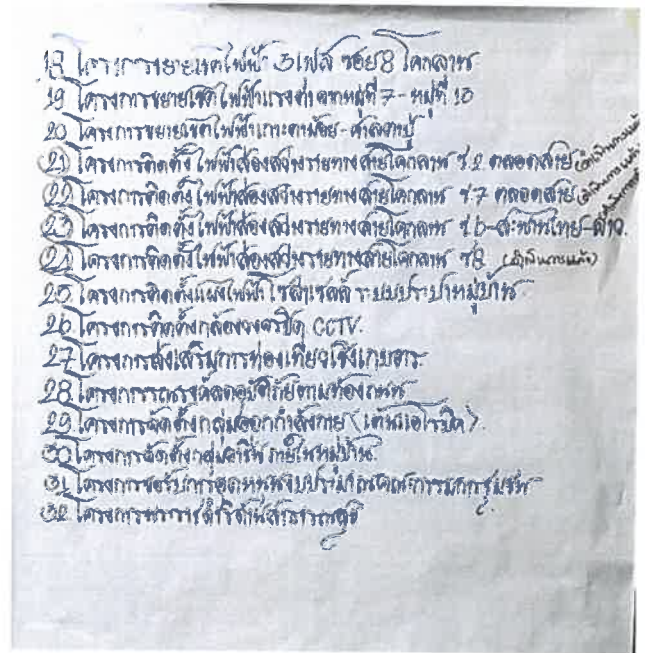 18 โครงการขยายเขตไฟฟ้า 3 เฟส ซอย 8 โคกลาน
19 โครงการขยายเขตไฟฟ้าแรงต่ำจากหมู่ที่ 7 - หมู่ที่ 10
20 โครงการขยายเขตไฟฟ้า
21 โครงการติดตั้งไฟฟ้าส่องสว่างรายทางสายโคกลาน ซ.2 ตลอดสาย (ดำเนินการแล้ว)
22 โครงการติดตั้งไฟฟ้าส่องสว่างรายทางสายโคกลาน ซ.7 ตลอดสาย (ดำเนินการแล้ว)
23 โครงการติดตั้งไฟฟ้าส่องสว่างรายทางสายโคกลาน ซ.6-สะพานไทย-ลาว. (ดำเนินการแล้ว)
24 โครงการติดตั้งไฟฟ้าส่องสว่างรายทางสายโคกลาน ซ8 (ดำเนินการแล้ว)
25 โครงการติดตั้งแผงไฟฟ้าโซล่าเซลล์ ระบบประปาหมู่บ้าน
26 โครงการติดตั้งกล้องวงจรปิด CCTV.
27 โครงการส่งเสริมการท่องเที่ยวเชิงเกษตร
28 โครงการรณรงค์ลดอุบัติภัยตามท้องถนน
29 โครงการจัดตั้งกลุ่มออกกำลังกาย (เต้นแอโรบิค).
30 โครงการจัดตั้งกลุ่มอาชีพ ภายในหมู่บ้าน
31 โครงการขอรับการอุดหนุนงบประมาณคณะกรรมการชุมชน
32 โครงการพระราชดำริด้านสาธารณสุข